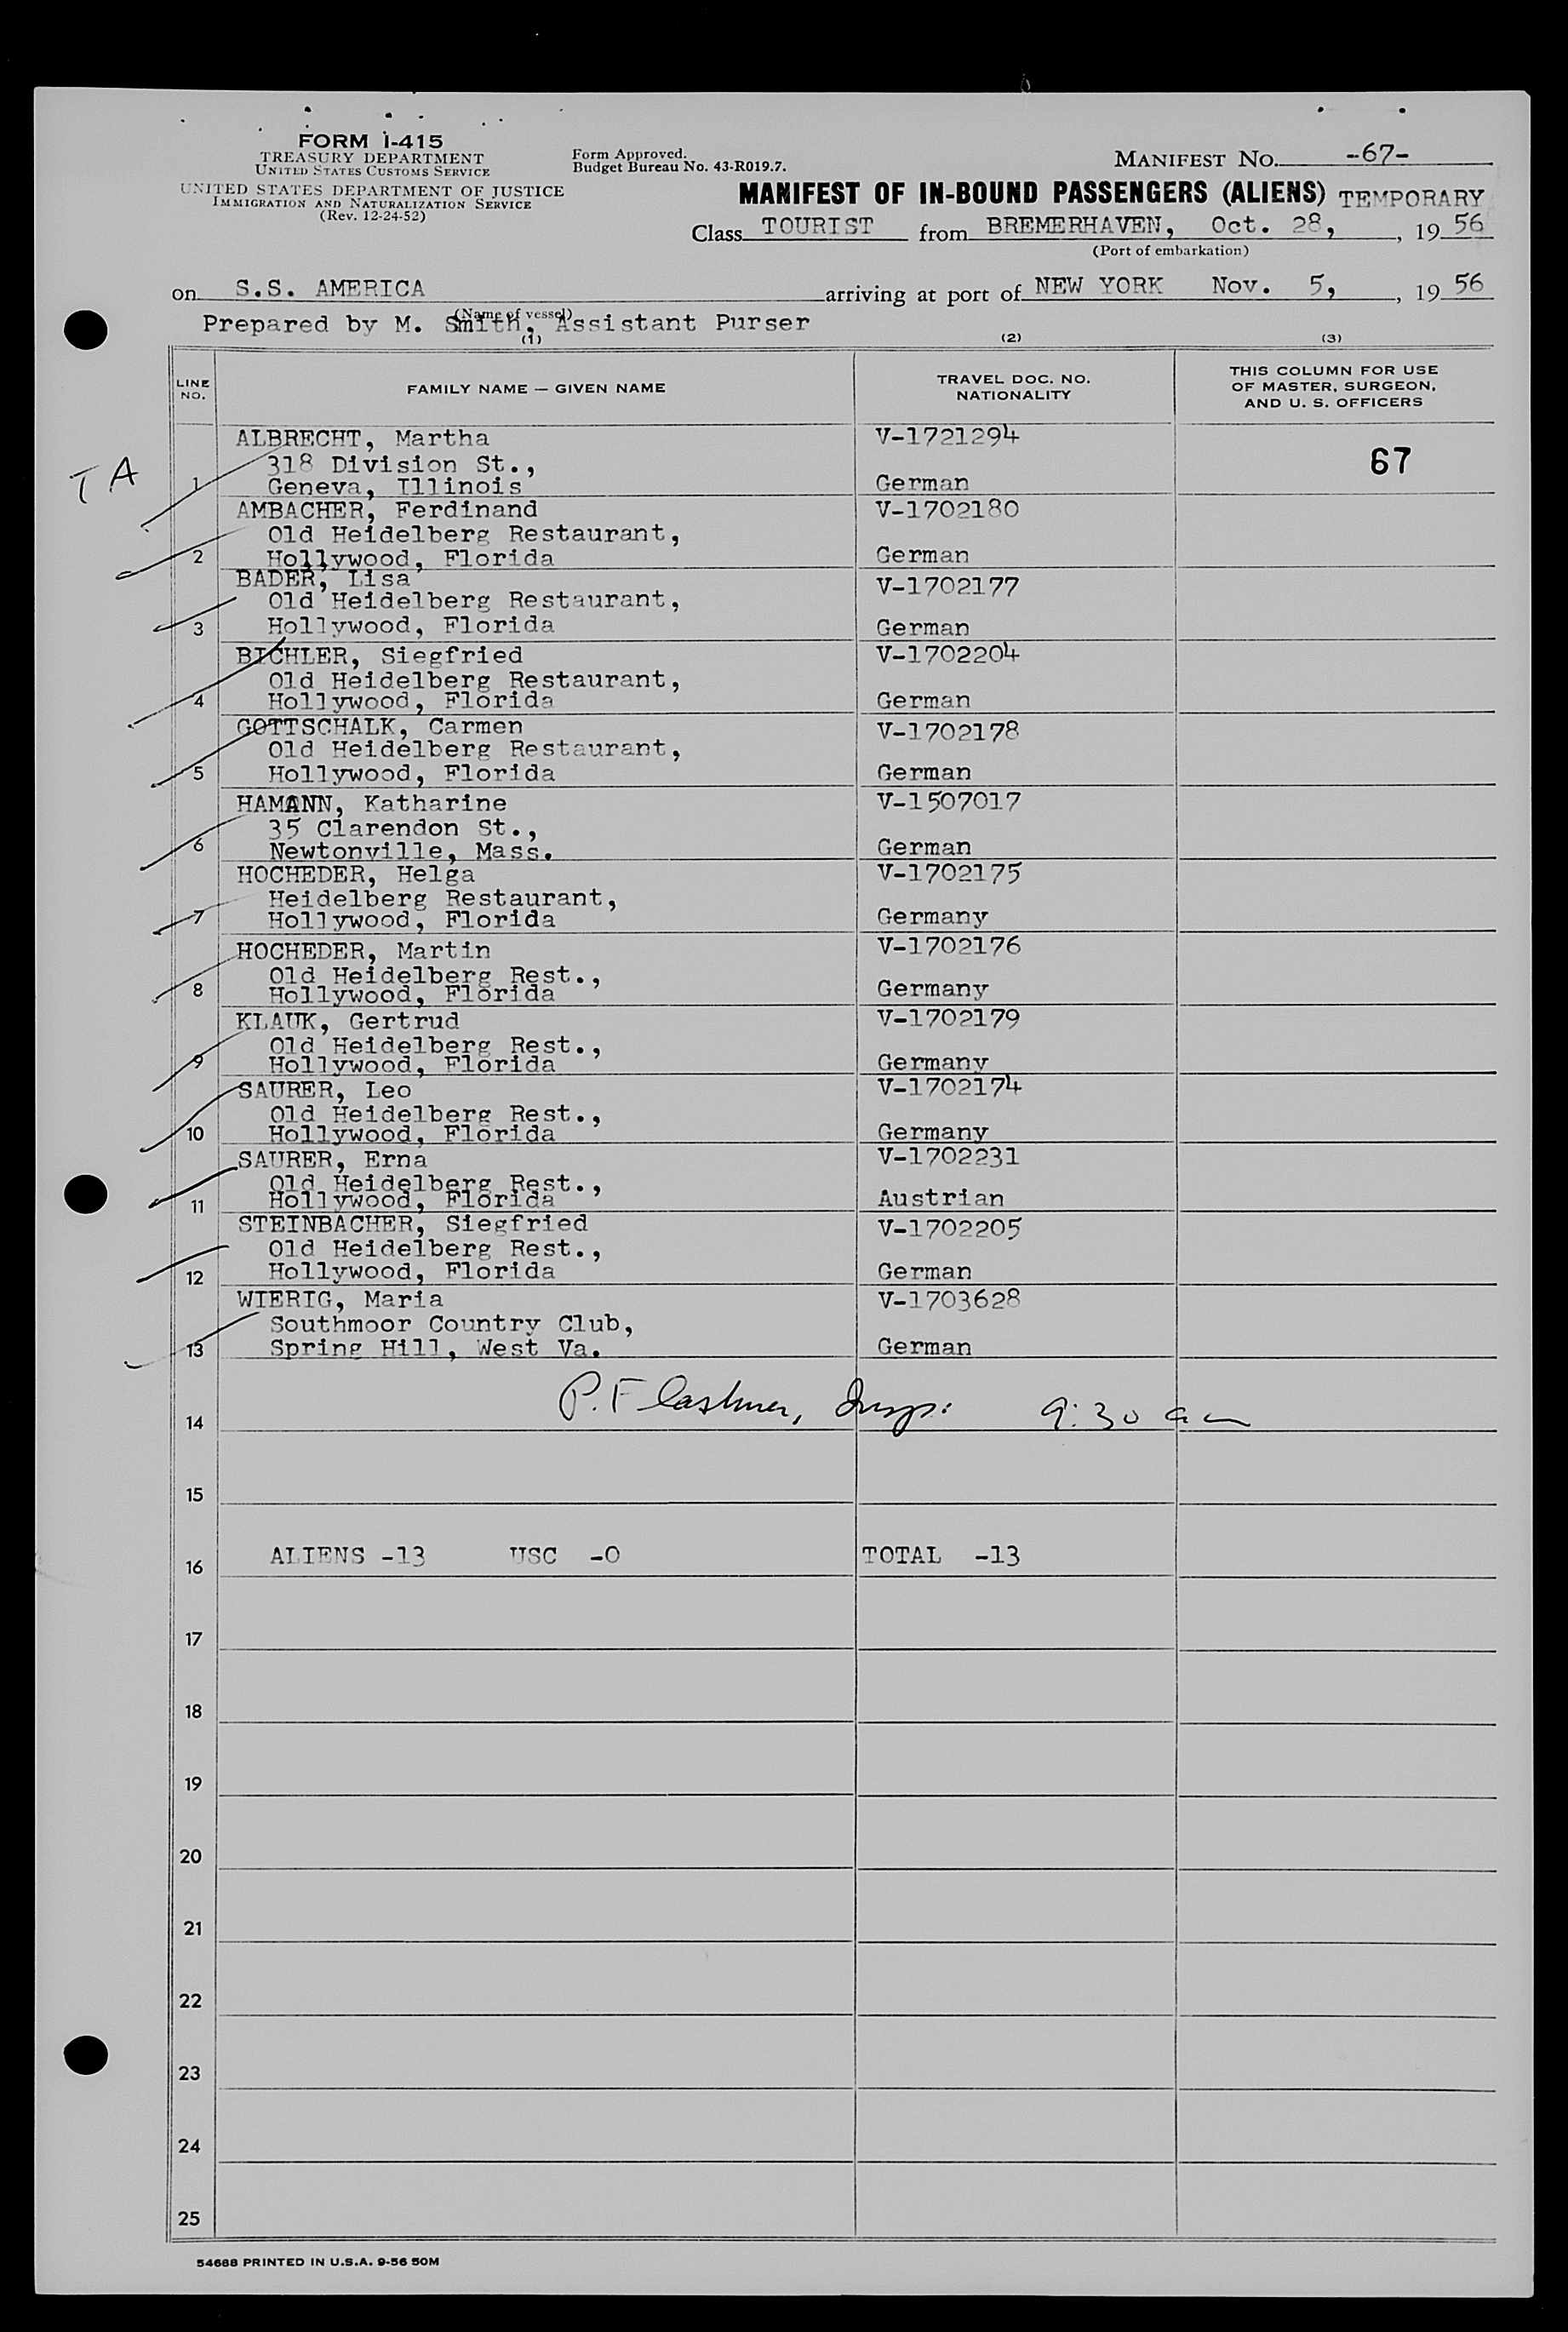 FORM I-415
TREASURY DEPARTMENT
UNITED STATES CUSTOMS SERVICE
UNITED STATES DEPARTMENT OF JUSTICE
IMMIGRATION AND NATURALIZATION SERVICE
(Rev. 12-24-52)
Form Approved.
Budget Bureau No. 43-R019.7.
MANIFEST NO. -67-
MANIFEST OF IN-BOUND PASSENGERS (ALIENS) TEMPORARY
Class TOURIST from BREMERHAVEN, Oct. 28, , 19 56
(Port of embarkation)
on S.S. AMERICA arriving at port of NEW YORK Nov. 5, , 19 56
(Name of vessel)
Prepared by M. Smith, Assistant Purser
(1) (2) (3)
LINE NO. FAMILY NAME — GIVEN NAME TRAVEL DOC. NO. NATIONALITY THIS COLUMN FOR USE OF MASTER, SURGEON, AND U. S. OFFICERS
ALBRECHT, Martha V-1721294
T A 318 Division St., 67
1 Geneva, Illinois German
AMBACHER, Ferdinand V-1702180
Old Heidelberg Restaurant,
2 Hollywood, Florida German
BADER, Lisa V-1702177
Old Heidelberg Restaurant,
3 Hollywood, Florida German
BICHLER, Siegfried V-1702204
Old Heidelberg Restaurant,
4 Hollywood, Florida German
GOTTSCHALK, Carmen V-1702178
Old Heidelberg Restaurant,
5 Hollywood, Florida German
HAMANN, Katharine V-1507017
35 Clarendon St.,
6 Newtonville, Mass. German
HOCHEDER, Helga V-1702175
Heidelberg Restaurant,
7 Hollywood, Florida Germany
HOCHEDER, Martin V-1702176
Old Heidelberg Rest.,
8 Hollywood, Florida Germany
KLAUK, Gertrud V-1702179
Old Heidelberg Rest.,
9 Hollywood, Florida Germany
SAURER, Leo V-1702174
Old Heidelberg Rest.,
10 Hollywood, Florida Germany
SAURER, Erna V-1702231
Old Heidelberg Rest.,
11 Hollywood, Florida Austrian
STEINBACHER, Siegfried V-1702205
Old Heidelberg Rest.,
12 Hollywood, Florida German
WIERIG, Maria V-1703628
Southmoor Country Club,
13 Spring Hill, West Va. German
14 P. F. Insp. 9:30 am
15
16 ALIENS -13 USC -0 TOTAL -13
17
18
19
20
21
22
23
24
25
54688 PRINTED IN U.S.A. 9-56 50M